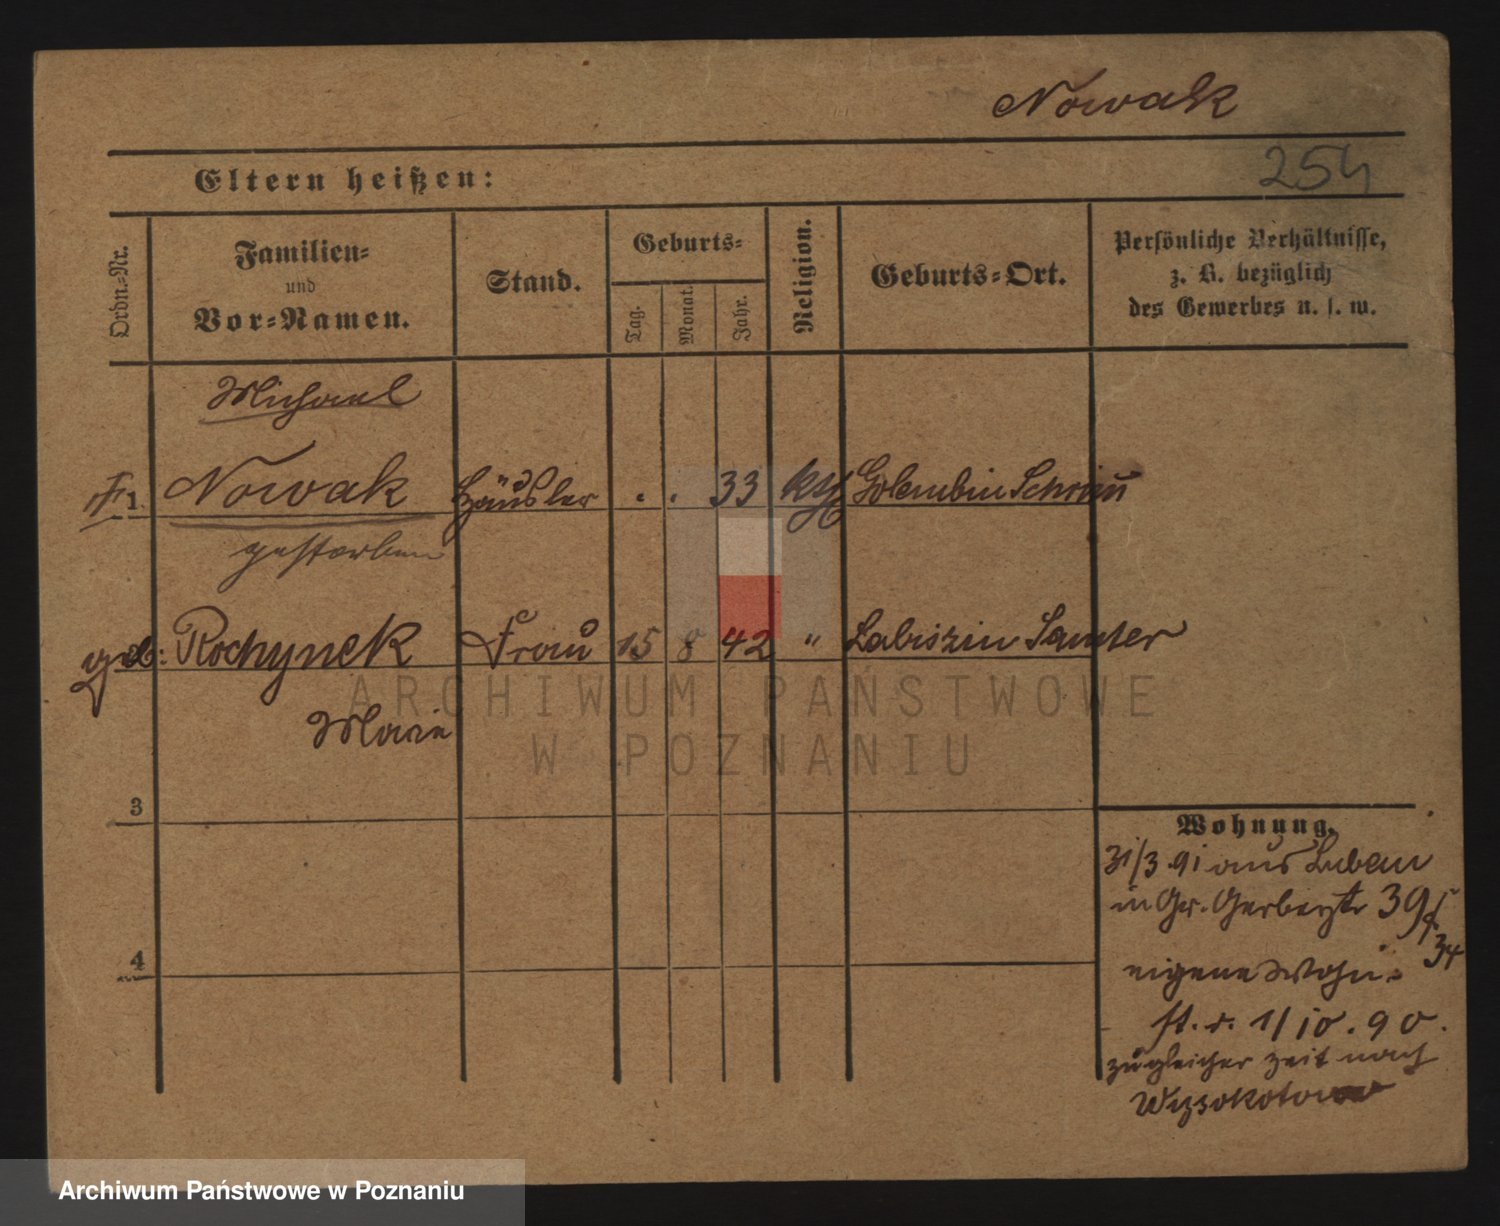 Nowak
254
Eltern heißen:
Ordn.-Nr.
Familien-
und
Vor-Namen.
Stand.
Geburts-
Tag.
Monat.
Jahr.
Religion.
Geburts-Ort.
Persönliche Verhältnisse,
z. B. bezüglich
des Gewerbes u. s. w.
Michael
1. Nowak Häusler . . 33 kth Golembin Schrim
gestorben
geb: Rochynek Frau 15 8 42 " Labiszin Samter
Marie
3
4
Wohnung.
31/3.91 aus Luban
in Gr. Gerberstr 39
34
eigene Wohn.
st. s. 1/10.90.
zugleicher Zeit nach
Wyzsokotowo
ARCHIWUM PAŃSTWOWE
W POZNANIU
Archiwum Państwowe w Poznaniu